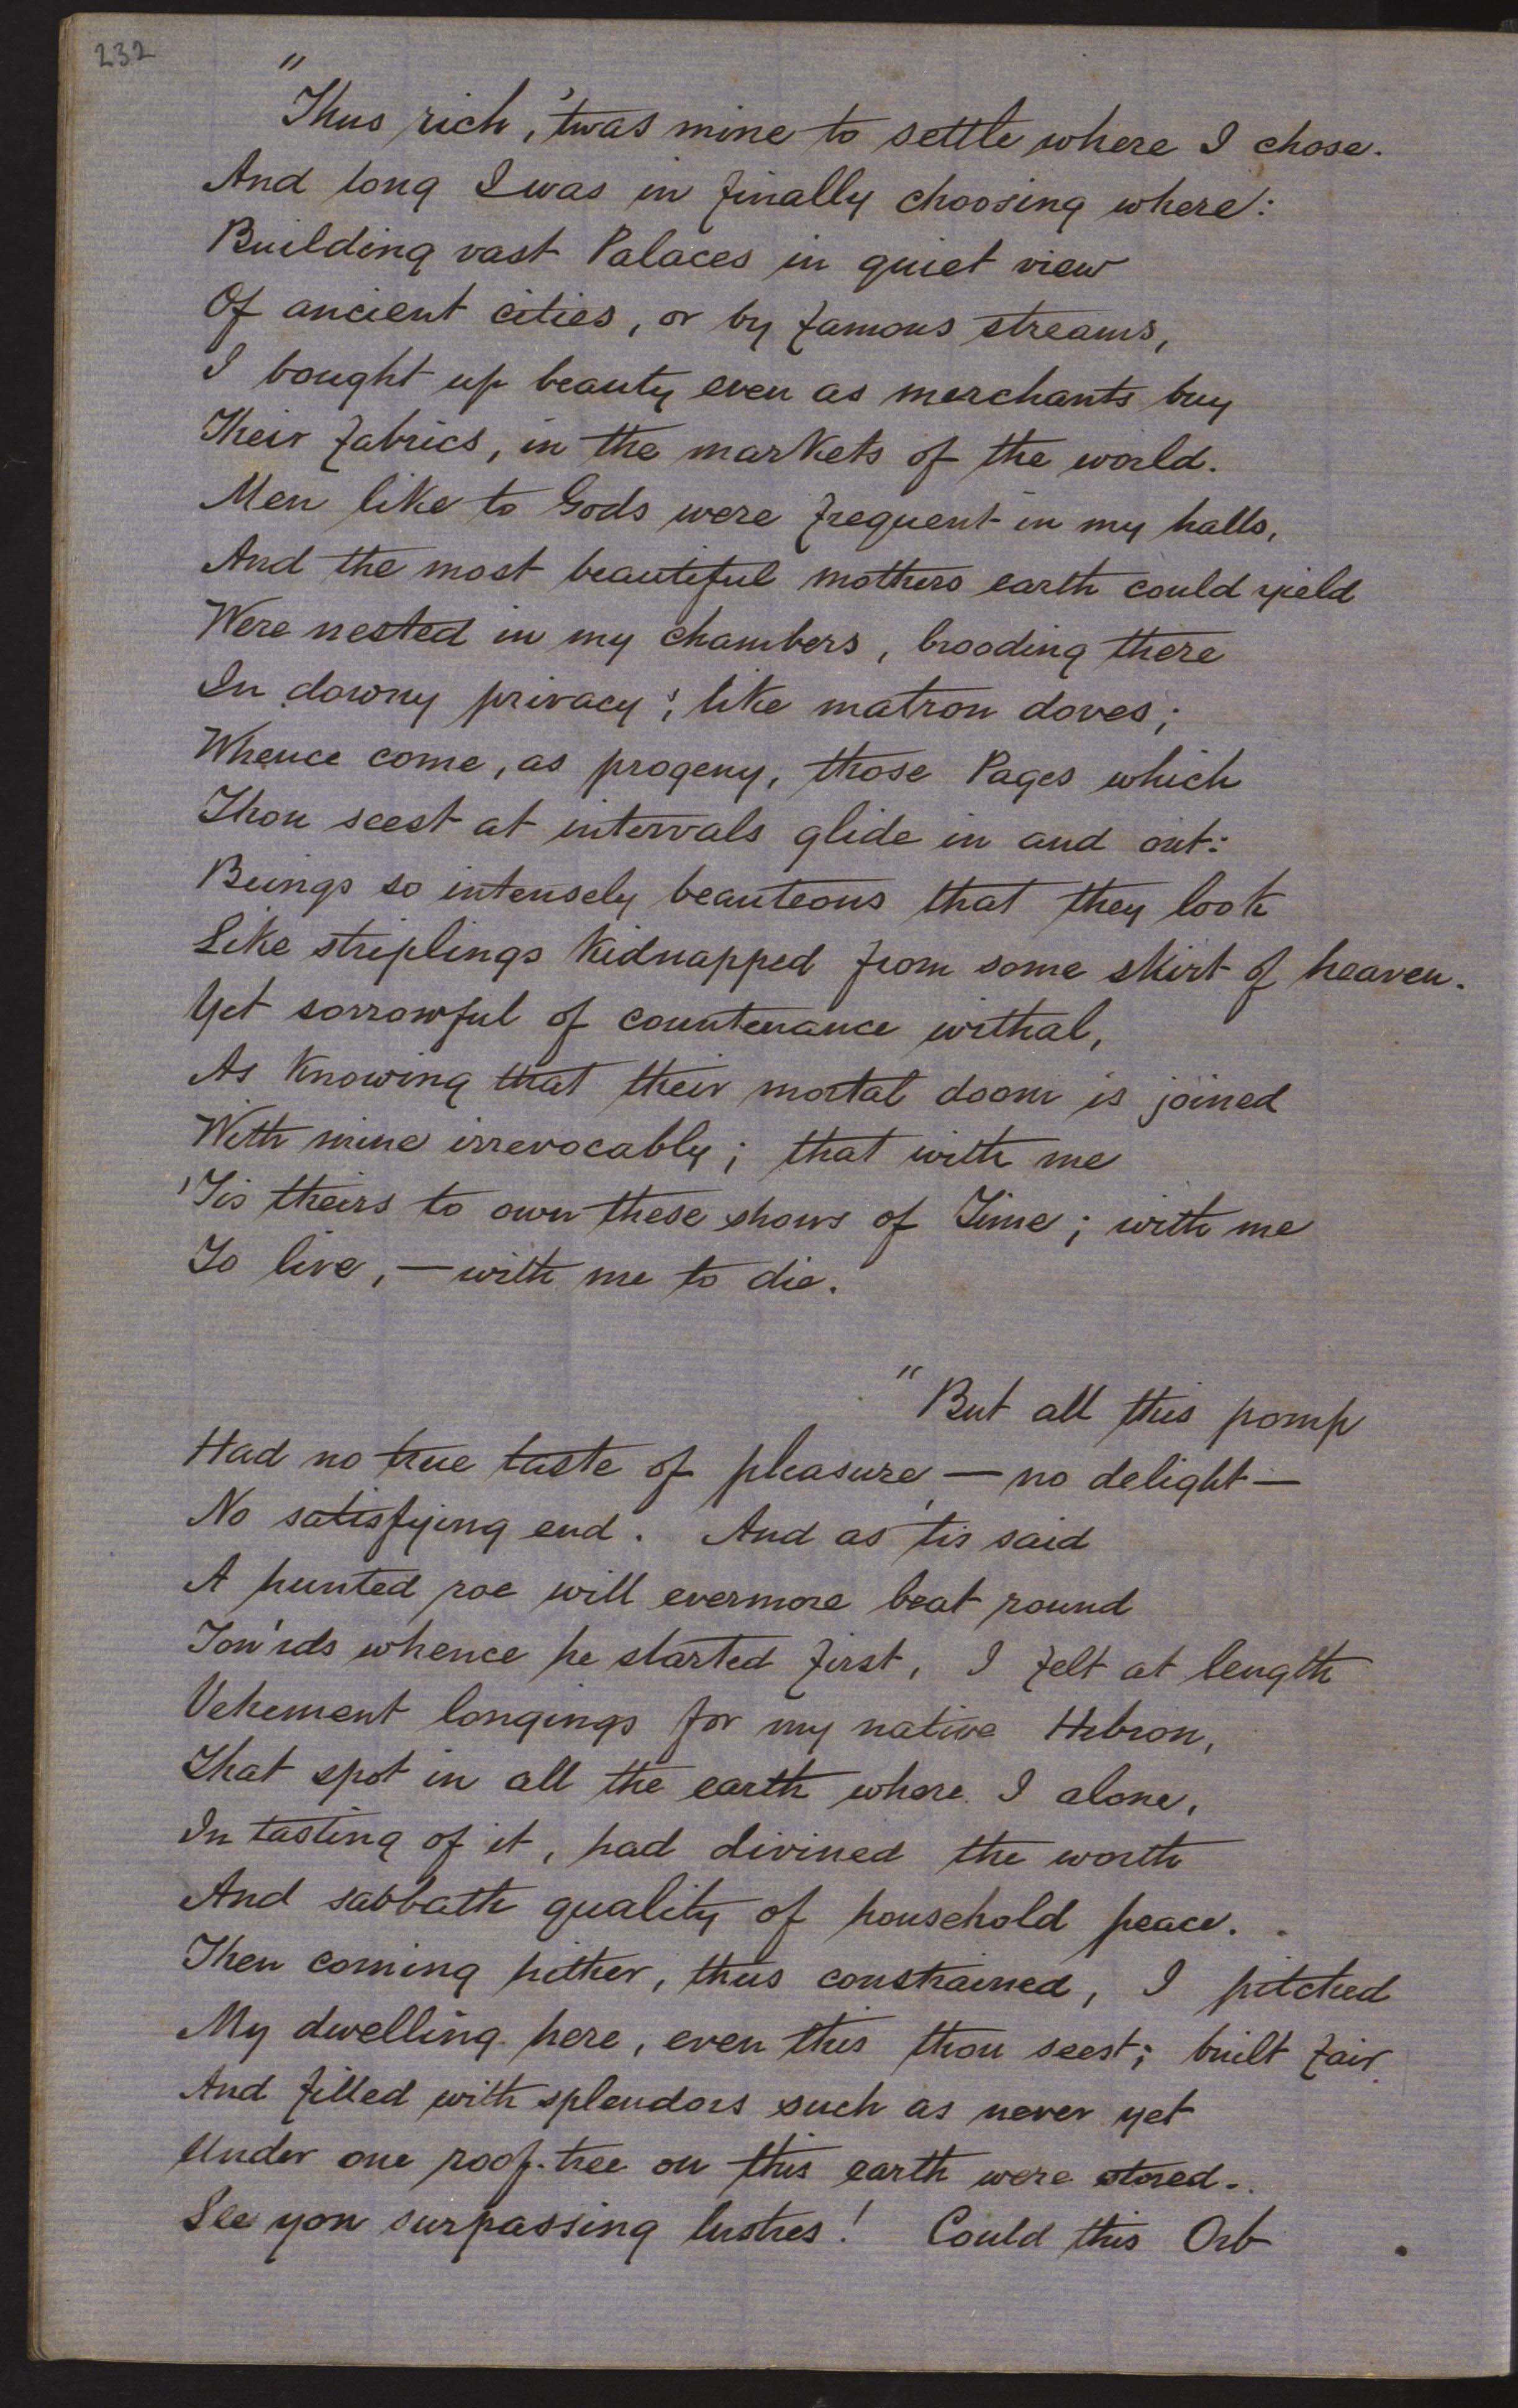 232
"Thus rich, 'twas mine to settle where I chose.
And long I was in finally choosing where:
Building vast Palaces in quiet view
Of ancient cities, or by famous streams,
I bought up beauty even as merchants buy
Their fabrics, in the markets of the world.
Men like to Gods were frequent in my halls,
And the most beautiful mothers earth could yield
Were nested in my chambers, brooding there
In downy privacy; like matron doves;
Whence come, as progeny, those Pages which
Thou seest at intervals glide in and out:
Beings so intensely beauteous that they look
Like striplings kidnapped from some skirt of heaven.
Yet sorrowful of countenance withal,
As knowing that their mortal doom is joined
With mine irrevocably; that with me
'Tis theirs to own these shows of Time; with me
To live,—with me to die.
"But all this pomp
Had no true taste of pleasure—no delight—
No satisfying end. And as 'tis said
A hunted roe will evermore beat round
Tow'rds whence he started first, I felt at length
Vehement longings for my native Hebron,
That spot in all the earth where I alone,
In tasting of it, had divined the worth
And sabbath quality of household peace.
Then coming hither, thus constrained, I pitched
My dwelling here, even this thou seest; built fair
And filled with splendors such as never yet
Under one roof-tree on this earth were stored.
See yon surpassing lustres! Could this Orb